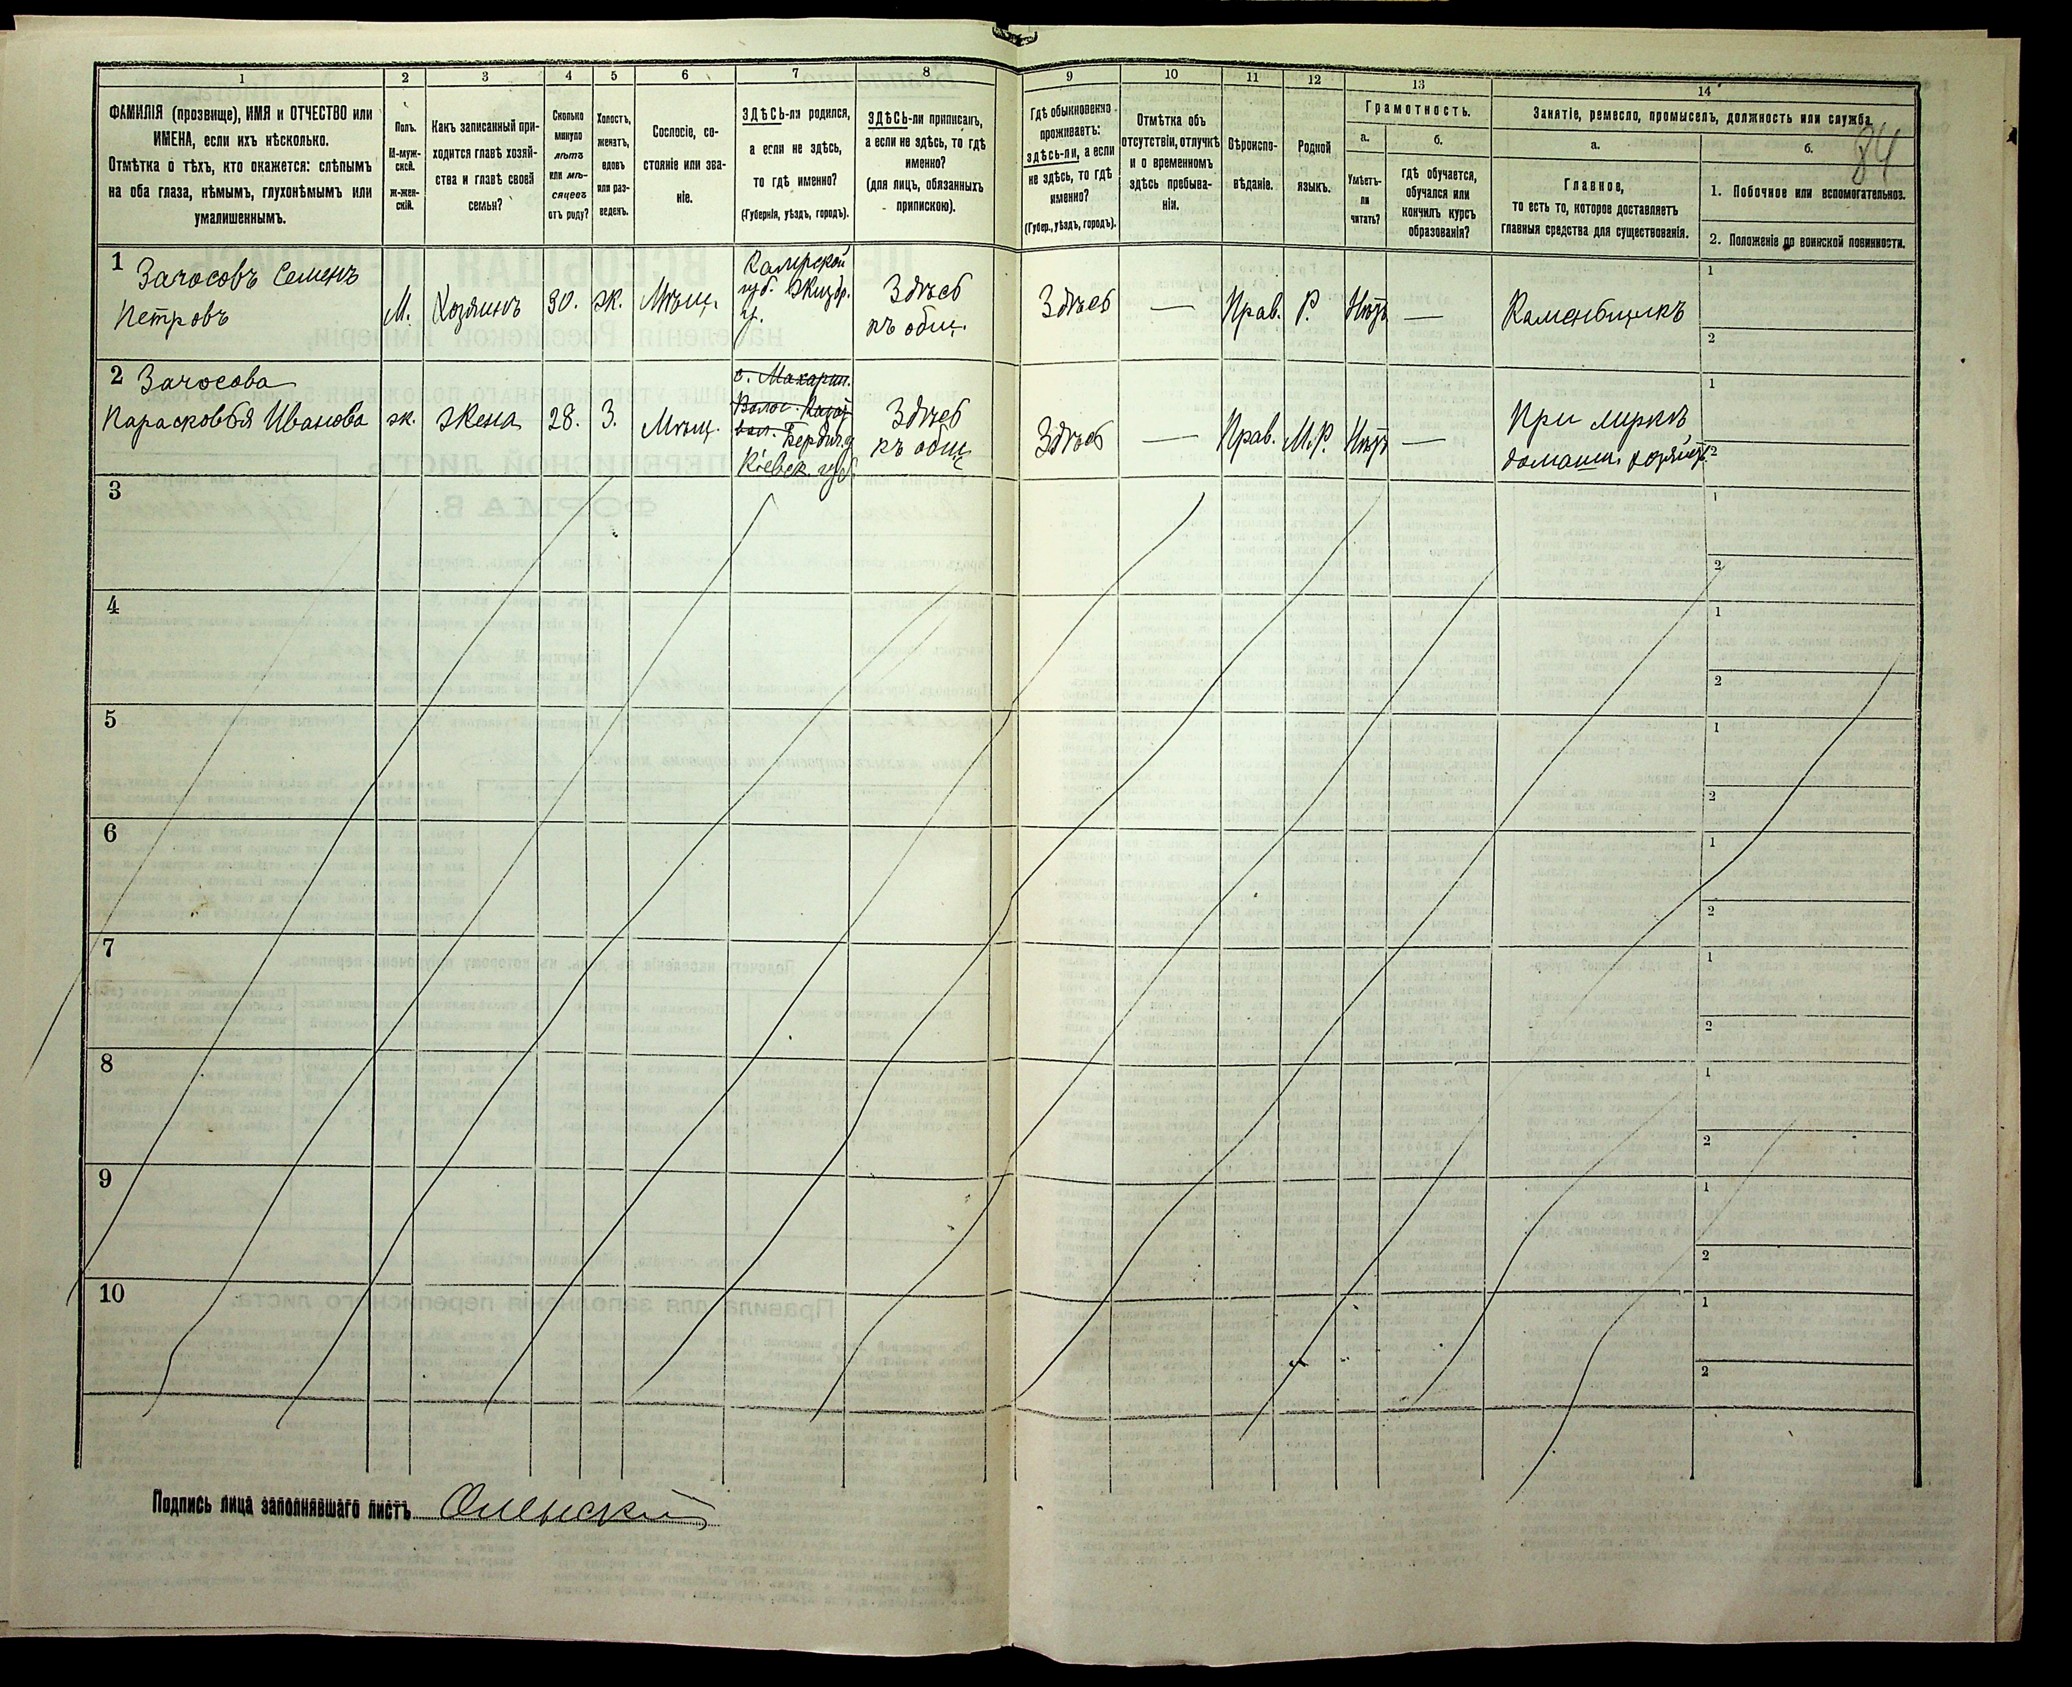 1
2
3
4
5
6
7
8
9
10
11
12
13
14
ФАМИЛІЯ (прозвище), ИМЯ и ОТЧЕСТВО или
ИМЕНА, если ихъ нѣсколько.
Отмѣтка о тѣхъ, кто окажется: слѣпымъ
на оба глаза, нѣмымъ, глухонѣмымъ или
умалишеннымъ.
Полъ.
М-муж-
ской.
ж-жен-
скій.
Какъ записанный при-
ходится главѣ хозяй-
ства и главѣ своей
семьи?
Сколько
минуло
лѣтъ
или мѣ-
сяцевъ
отъ роду?
Холостъ,
женатъ,
вдовъ
или раз-
веденъ.
Сословіе, со-
стояніе или зва-
ніе.
ЗДѢСЬ-ли родился,
а если не здѣсь,
то гдѣ именно?
(Губернія, уѣздъ, городъ).
ЗДѢСЬ-ли приписанъ,
а если не здѣсь, то гдѣ
именно?
(для лицъ, обязанныхъ
припискою).
Гдѣ обыкновенно
проживаетъ:
здѣсь-ли, а если
не здѣсь, то гдѣ
именно?
(Губер., уѣздъ, городъ).
Отмѣтка объ
отсутствіи, отлучкѣ
и о временномъ
здѣсь пребыва-
ніи.
Вѣроиспо-
вѣданіе.
Родной
языкъ.
Грамотность.
а.
Умѣетъ-
ли
читать?
б.
гдѣ обучается,
обучался или
кончилъ курсъ
образованія?
Занятіе, ремесло, промыселъ, должность или служба.
84
а.
Главное,
то есть то, которое доставляетъ
главныя средства для существованія.
б.
1. Побочное или вспомогательное.
2. Положеніе по воинской повинности.
1
Зачосовъ Семенъ
Петровъ
М.
Хозяинъ
30.
ж.
Мѣщ.
губ.
у.
Здѣсь
къ общ.
Здѣсь
—
Прав.
Р.
Нѣтъ
—
Каменьщикъ
1
2
2
Зачосова
Парасковья Иванова
ж.
жена
28.
З.
Мѣщ.
Бердич. у.
Кіевск. губ.
Здѣсь
къ общ.
Здѣсь
—
Прав.
М.Р.
Нѣтъ
—
При мужѣ
домашн. хозяйст.
1
2
3
1
2
4
1
2
5
1
2
6
1
2
7
1
2
8
1
2
9
1
2
10
1
2
Подпись лица заполнявшаго листъ